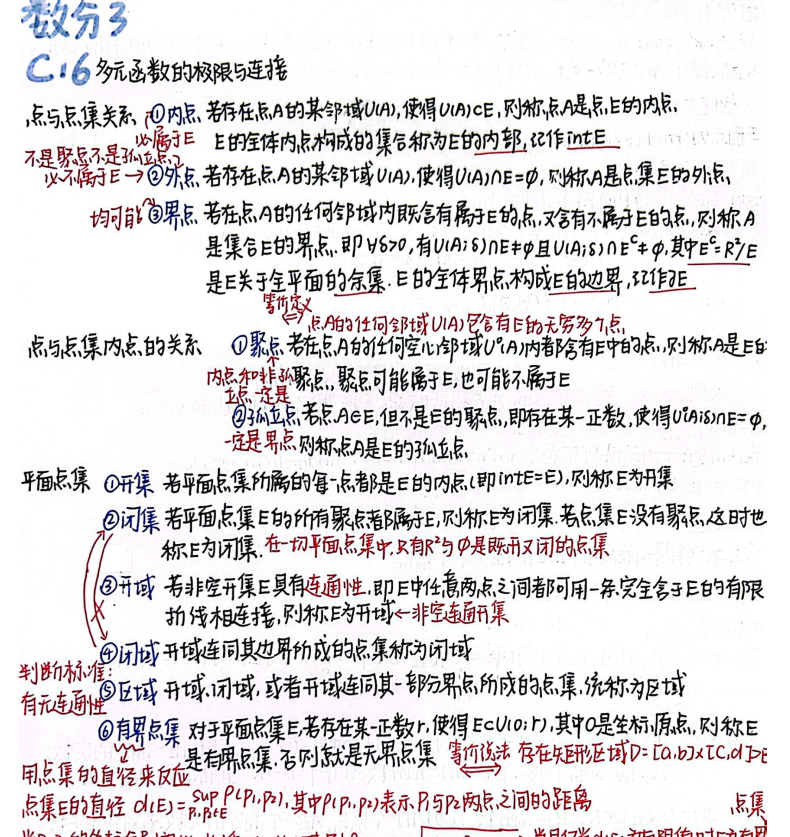 数分3
C16 多元函数的极限与连接
点与点集关系 ①内点 若存在点A的某邻域U(A),使得U(A)⊂E,则称点A是点E的内点.
必属于E E的全体内点构成的集合称为E的内部,记作intE
不是聚点不是孤立点
必不属于E → ②外点 若存在点A的某邻域U(A),使得U(A)∩E=φ,则称A是点集E的外点.
均可能 ③界点 若在点A的任何邻域内既含有属于E的点,又含有不属于E的点,则称A
是集合E的界点.即∀δ>0,有U(A;δ)∩E≠φ且U(A;δ)∩E^C≠φ,其中E^C=R²/E
是E关于全平面的余集.E的全体界点构成E的边界,记作∂E
等价定义
⇔ 点A的任何邻域U(A)包含有E的无穷多个点
点与点集内点的关系 ①聚点 若在点A的任何空心邻域U°(A)内都含有E中的点,则称A是E的
内点和非孤立点一定是 聚点,聚点可能属于E,也可能不属于E
②孤立点 若点A∈E,但不是E的聚点,即存在某一正数,使得U°(A;δ)∩E=φ,
一定是界点 则称点A是E的孤立点
平面点集 ①开集 若平面点集所属的每一点都是E的内点(即intE=E),则称E为开集
②闭集 若平面点集E的所有聚点都属于E,则称E为闭集.若点集E没有聚点,这时也
称E为闭集.在一切平面点集中,只有R²与φ是既开又闭的点集
③开域 若非空开集E具有连通性,即E中任意两点之间都可用一条完全含于E的有限
折线相连接,则称E为开域←非空连通开集
④闭域 开域连同其边界所成的点集称为闭域
判断标准:
有无连通性 ⑤区域 开域、闭域,或者开域连同其一部分界点所成的点集,统称为区域
⑥有界点集 对于平面点集E,若存在某一正数r,使得E⊂U(O;r),其中O是坐标原点,则称E
是有界点集.否则就是无界点集 等价说法 ⇔ 存在矩形区域D=[a,b]×[c,d]⊃E
用点集的直径来反应
点集E的直径 d(E)=sup ρ(P₁,P₂),其中ρ(P₁,P₂)表示P₁与P₂两点之间的距离 点集
P₁,P₂∈E